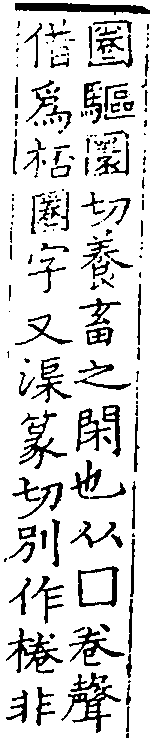 圈驅圂切養畜之閑也从囗卷聲
借爲桮圈字又渠篆切別作棬非